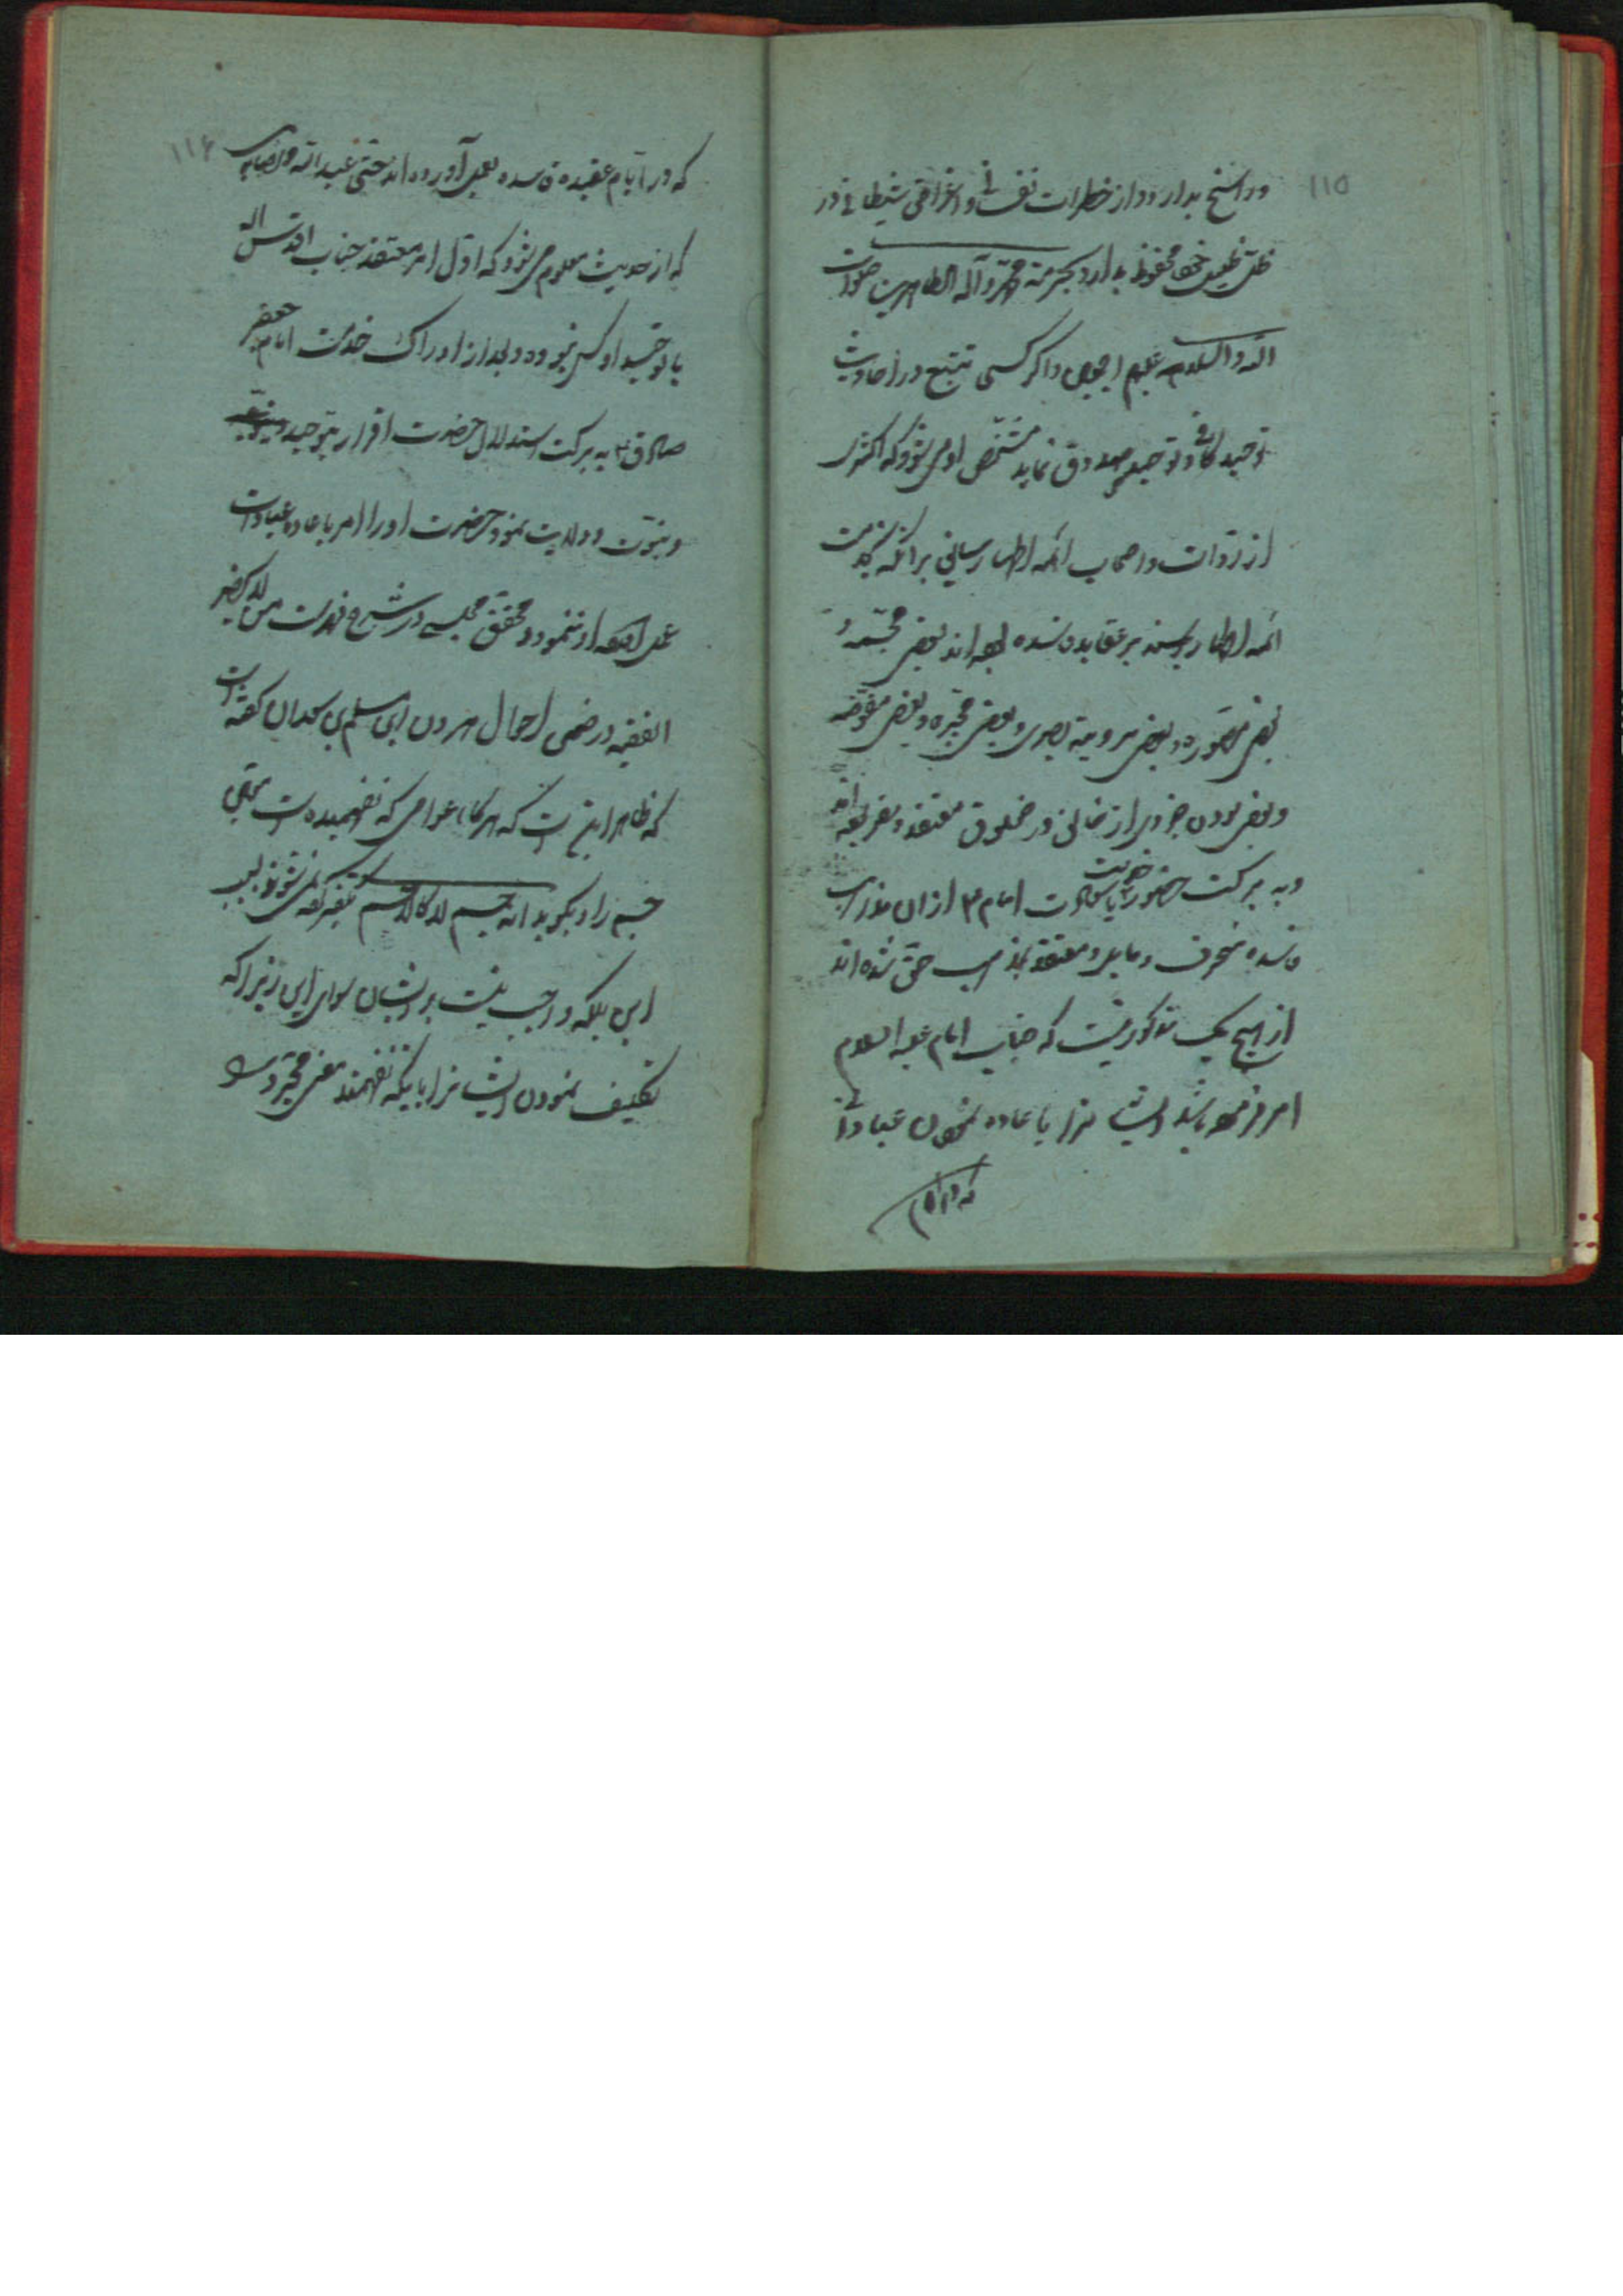 ۱۱۵
و راسخ بدارد و از خطرات نفسانی و اغراض شیطانی در
ظل ظلیل خود محفوظ بدارد بحرمة محمد و آله الطاهرین صلوات
الله والسلام علیهم اجمعین و اگر کسی تتبع در احادیث
توحید کافی و توحید صدوق نماید مشخص او می شود که اکثری
از روات و اصحاب ائمه اطهار سابق بر آنکه بخدمت
ائمه اطهار برسند بر عقایده فاسده بوده اند بعض مجسمه و
بعض مصوره و بعض برویة بصری و بعض مجبره و بعض مفوضه
و بعض بودن جزوی از خالق در مخلوق معتقد و مقر بوده اند
و به برکت حضور خدمت با سعادت امام ۴ از ان مذاهب
فاسده منحرف و مایل و معتقد بمذهب حق شده اند
از هیچ یک مذکور نیست که جناب امام علیه السلام
امر فرموده باشد ایشانرا باعاده نمودن عباداتی
که در ایام
۱۱۶
که در ایام عقیده فاسده بعمل آورده اند حتی عبد الله دیصانی
که از حدیث معلوم می شود که اول امر معتقد جناب اقدس اله
یا توحید او کس نبوده و بعد از ادراک خدمت امام جعفر
صادق ۴ به برکت استدلال حضرت اقرار بتوحید
و نبوت و ولایت نمود حضرت او را امر باعاده عبادات
عمل او ننمود و محقق مجلسی در شرح فهرست من لا یحضر
الفقیه در ضمن احوال هرون ابن مسلم بن سعدان گفته است
که ظاهر این است که هرگاه عوامی که نفهمیده است معنی
جسم را و بگوید انه جسم لا کالاجسام تکفیر کرده نمی شوند بسبب
این بلکه واجب نیست بر ایشان سوای این زیرا که
تکلیف نمودن ایشانرا باینکه بفهمند معنی مجرد را